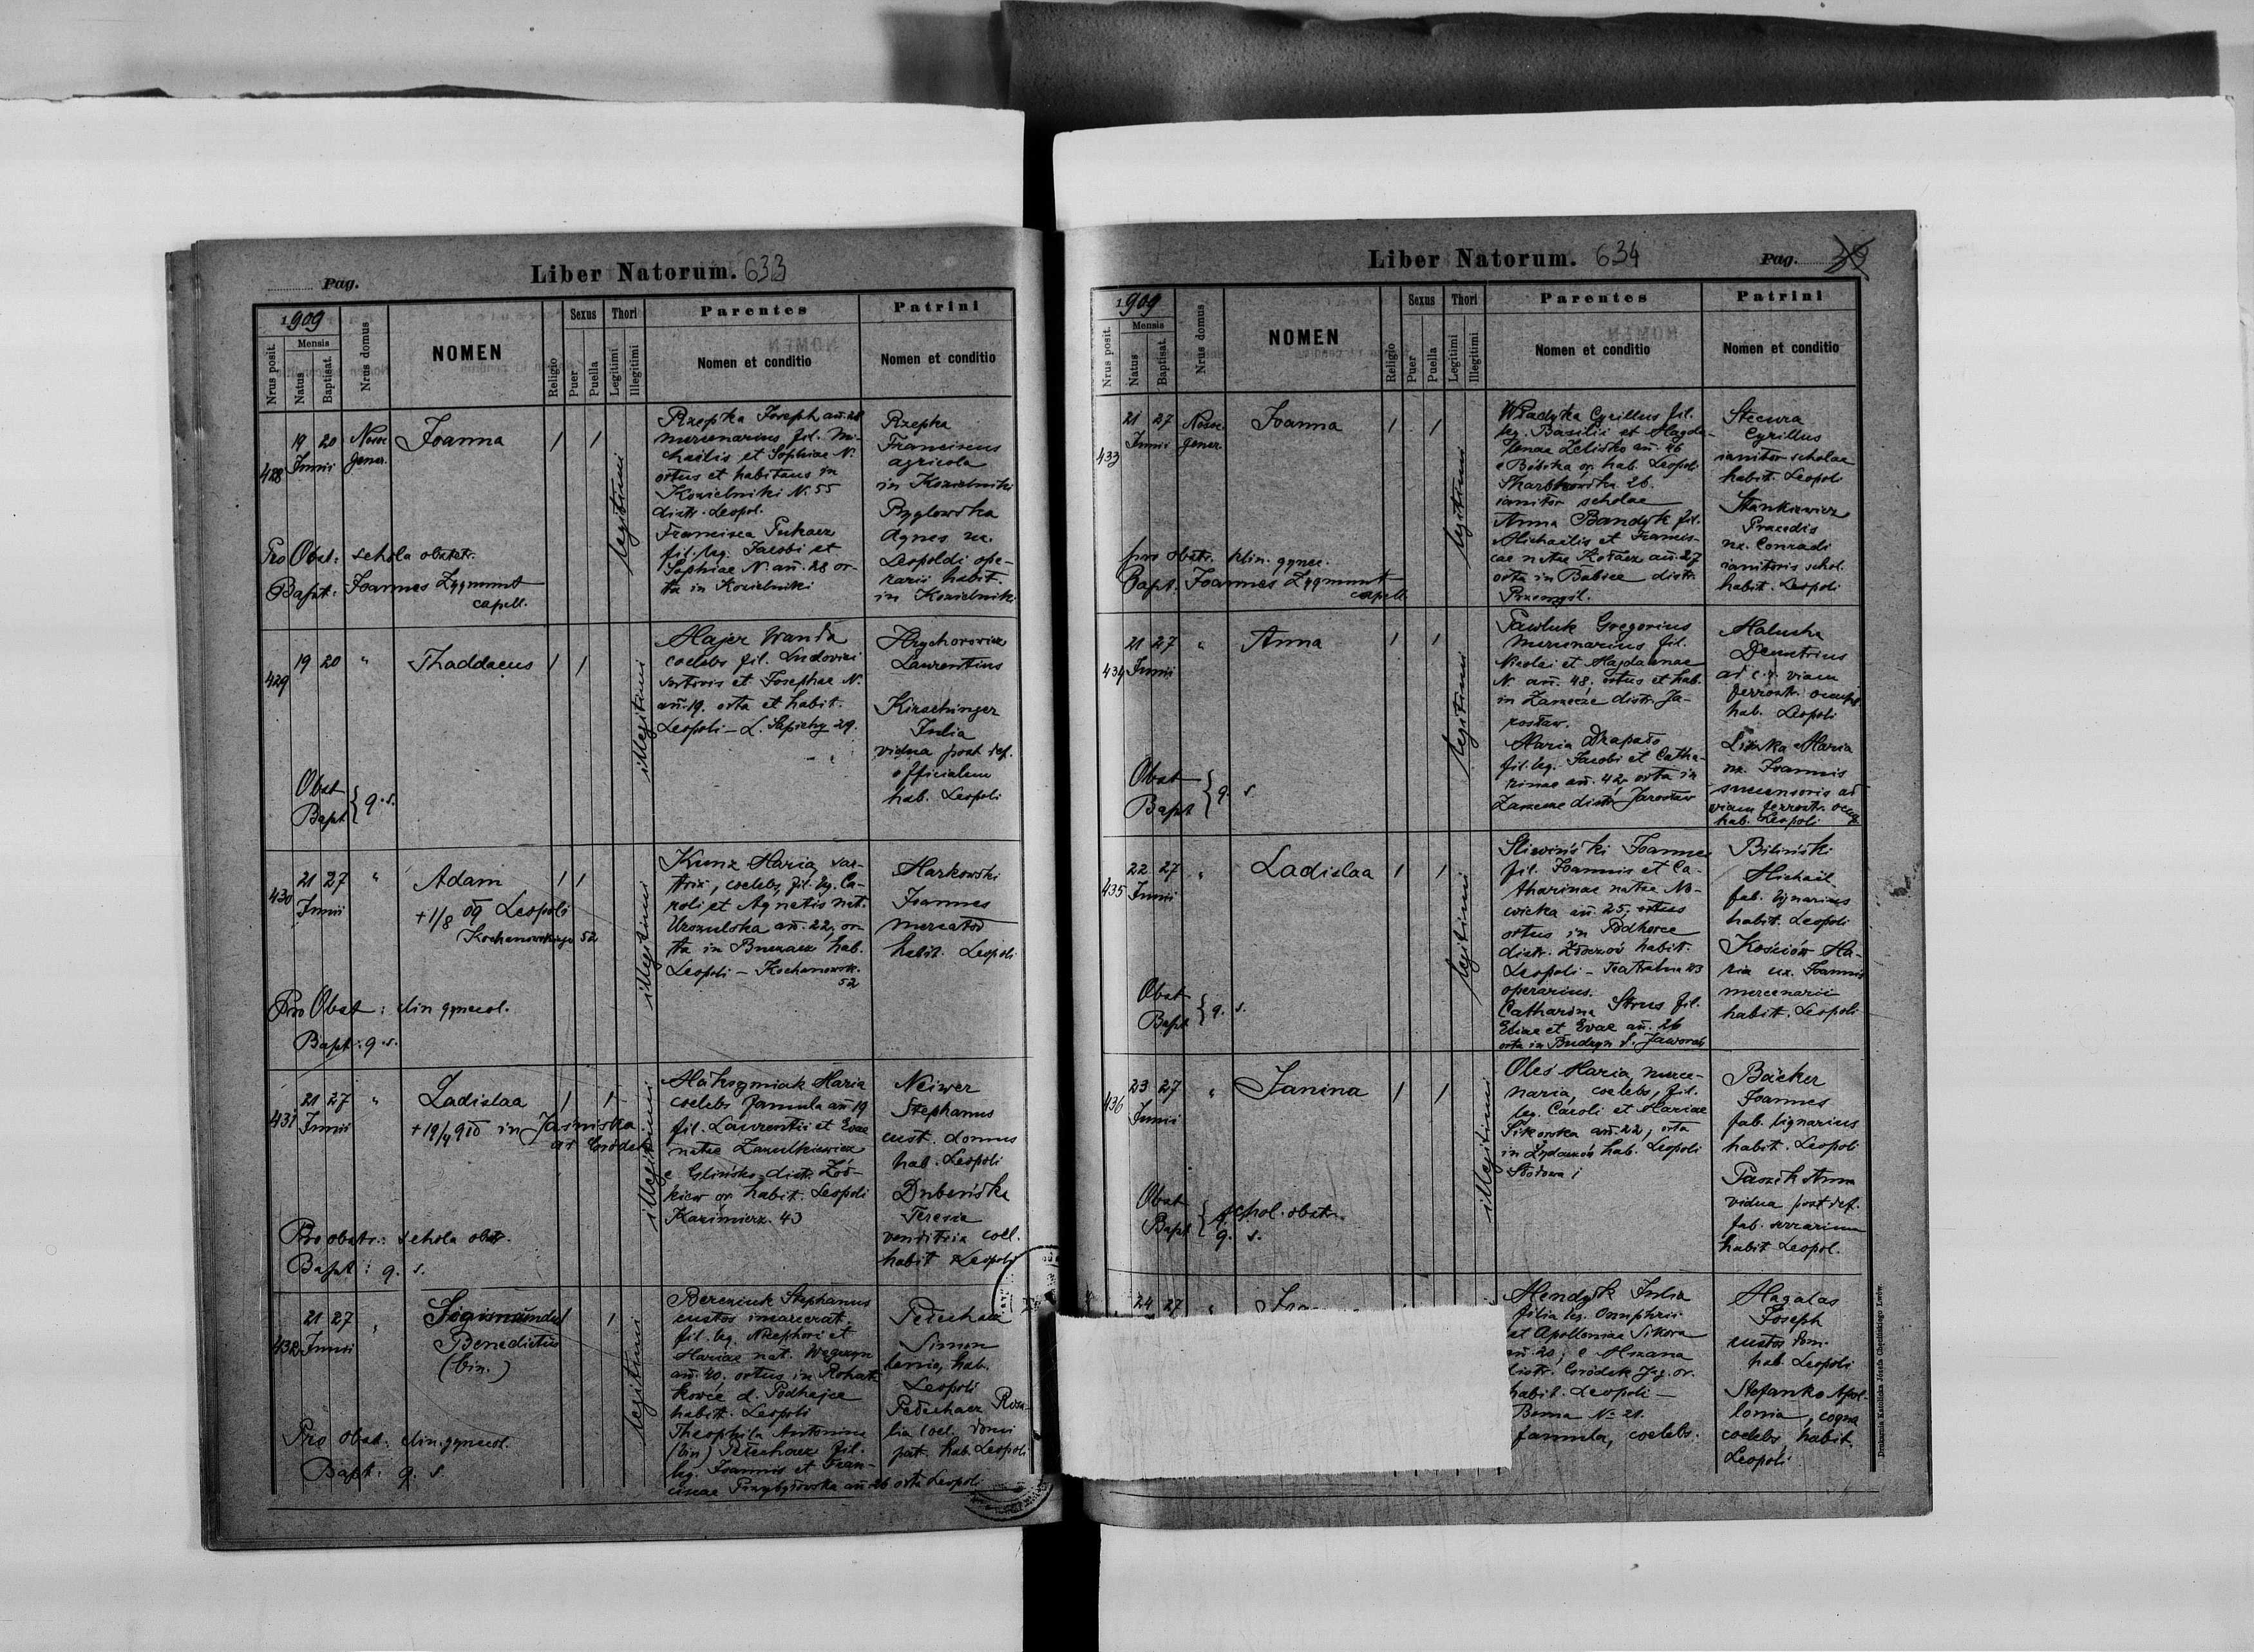 Pag.
Liber Natorum. 633
1909
Nrus posit.
Mensis
Natus
Baptisat.
Nrus domus
NOMEN
Religio
Sexus
Puer
Puella
Thori
Legitimi
Illegitimi
Parentes
Nomen et conditio
Patrini
Nomen et conditio
428
19 20
Junii
Nosoc
gener.
Joanna
1 1
legitimi
Rzepka Joseph añ. 28
mercenarius fil. Mi-
chaelis et Sophiae N.
ortus et habitans in
Kozielniki N. 55
distr. Leopol.
Francisca Pukacz
fil. leg. Jacobi et
Sophiae N. añ. 28 or-
ta in Kozielniki
Rzepka
Franciscus
agricola
in Kozielniki
Agnes ux.
Leopoldi ope-
rarii habit.
in Kozielniki
Pro Obst: schola obstetr.
Bapt: Joannes Zygmunt
capell.
429
19 20 "
Thaddaeus
1 1
illegitimi
Majer Wanda
coelebs fil. Ludovici
sartoris et Josephae N.
añ. 19. orta et habit.
Leopoli - L. Sapiehy 29.
Hrychorowicz
Laurentius
Kirschinger
Julia
vidua post def.
officialem
hab. Leopoli
Obst
Bapt } q. s.
430
21 27 "
Junii
Adam
+ 1/8 09 Leopoli
Kochanowskiego 52
1 1
illegitimi
Kunz Maria, sar-
trix, coelebs, fil. leg. Ca-
roli et Agnetis nat.
Urszulska añ. 22, or-
ta in Buczacz hab.
Leopoli - Kochanowsk.
52
Markowski
Joannes
mercator
habit. Leopoli
Pro Obst: clin gynecol.
Bapt: q. s.
431
21 27 "
Junii
Ladislaa
+ 19/4 910 in Jasniska
ad Gródek
1 1
illegitimi
Maria
coelebs famula añ 19
fil. Laurentii et Evae
natae Zazulkiewicz
e Glińsko distr. Żół-
kiew or. habit. Leopoli
Kazimierz. 43
Neiwer
Stephanus
cust. domus
hab. Leopoli
Dubeńska
Teresia
venditrix coel.
habit Leopoli
Pro obstr.: schola obst.
Bapt: q. s.
432
21 27 "
Junii
Sigismundus
Benedictus
(bin.)
1
legitimi
Berezink Stephanus
custos incarcerat.
fil. leg. Nicephori et
Mariae nat. Węgrzyn
añ. 40. ortus in Rohat-
kowce d. Podhajce
habit. Leopoli
Theophila Antonina
(bin) Pełechacz fil.
leg. Joannis et Fran-
ciscae Przybyłowska añ 26 orta Leopoli
Pełechacz
Simon
hab.
Leopoli
Pełechacz Rosa-
lia coel. domi
pat. hab. Leopoli
Pro obst: clin. gynecol.
Bapt: q. s.
Liber Natorum. 634
Pag.
1909
Nrus posit.
Mensis
Natus
Baptisat.
Nrus domus
NOMEN
Religio
Sexus
Puer
Puella
Thori
Legitimi
Illegitimi
Parentes
Nomen et conditio
Patrini
Nomen et conditio
433
21 27
Junii
Nosoc.
gener
Joanna
1 1
legitimi
Władyka Cyrillus fil.
leg. Basilii et Magda-
lenae Zelisko añ. 26
e Bóbrka or. hab. Leopoli
Skarbkowska 26.
ianitor scholae
Anna Bandyk fil.
Michaelis et Francis-
cae natae Kołacz añ. 27
orta in Babice distr.
Przemyśl.
Stecura
Cyrillus
ianitor scholae
habit. Leopoli
Stankiewicz
Praxedis
ux. Conradi
ianitoris schol.
habit. Leopoli
pro obstr. klin. gynec.
Bapt. Joannes Zygmunt
capell.
434
21 27 "
Junii
Anna
1 1
legitimi
Pawluk Gregorius
mercenarius fil.
Nicolai et Magdalenae
N. añ. 48. ortus et hab.
in Zamiecze distr. Ja-
rosław.
Maria Drapało
fil. leg. Jacobi et Catha-
rinae añ. 42, orta in
Zamiecze distr. Jarosław
Malucha
Demetrius
ad c. r. viam
ferrostr. occup.
hab. Leopoli
Maria
ux. Joannis
succensoris ad
viam ferrostr. occup
hab. Leopoli
Obst
Bapt } q. s.
435
22 27 "
Junii
Ladislaa
1 1
legitimi
Sliwiński Joannes
fil. Joannis et Ca-
tharinae natae No-
wicka añ. 25, ortus
ortus in Podhorce
distr. Złoczów habit.
Leopoli - Teatralna 23
operarius.
Catharina Strus fil.
Eliae et Evae añ. 26
orta in Budzyń d. Jaworów
Biliński
Michael
fab. lignarius
habit. Leopoli
Kościów Ma-
ria ux. Joannis
mercenarii
habit. Leopoli
Obst
Bapt } q. s.
436
23 27 "
Junii
Janina
1 1
illegitimi
Oles Maria, merce-
naria, coelebs, fil.
leg. Caroli et Mariae
Sikorska añ. 22, orta
in Żydaczów hab. Leopoli
Bäcker
Joannes
fab. lignarius
habit. Leopoli
Paszik Anna
vidua post def.
fab. serrarium
habit Leopol.
Obst } schol. obstr.
Bapt } q. s.
24 27 "
Mendyk Julia
filia leg. Onuphrii
et Apolloniae Sikora
añ. 20, e Mszana
distr. Gródek Jag. or.
habit. Leopoli -
Bema N= 21.
famula, coelebs.
Magalas
Joseph
custos dom.
hab. Leopoli
Stefanko Apol-
lonia, coqua
coelebs, habit.
Leopoli
Drukarnia Katolicka Józefa Chęcińskiego Lwów.